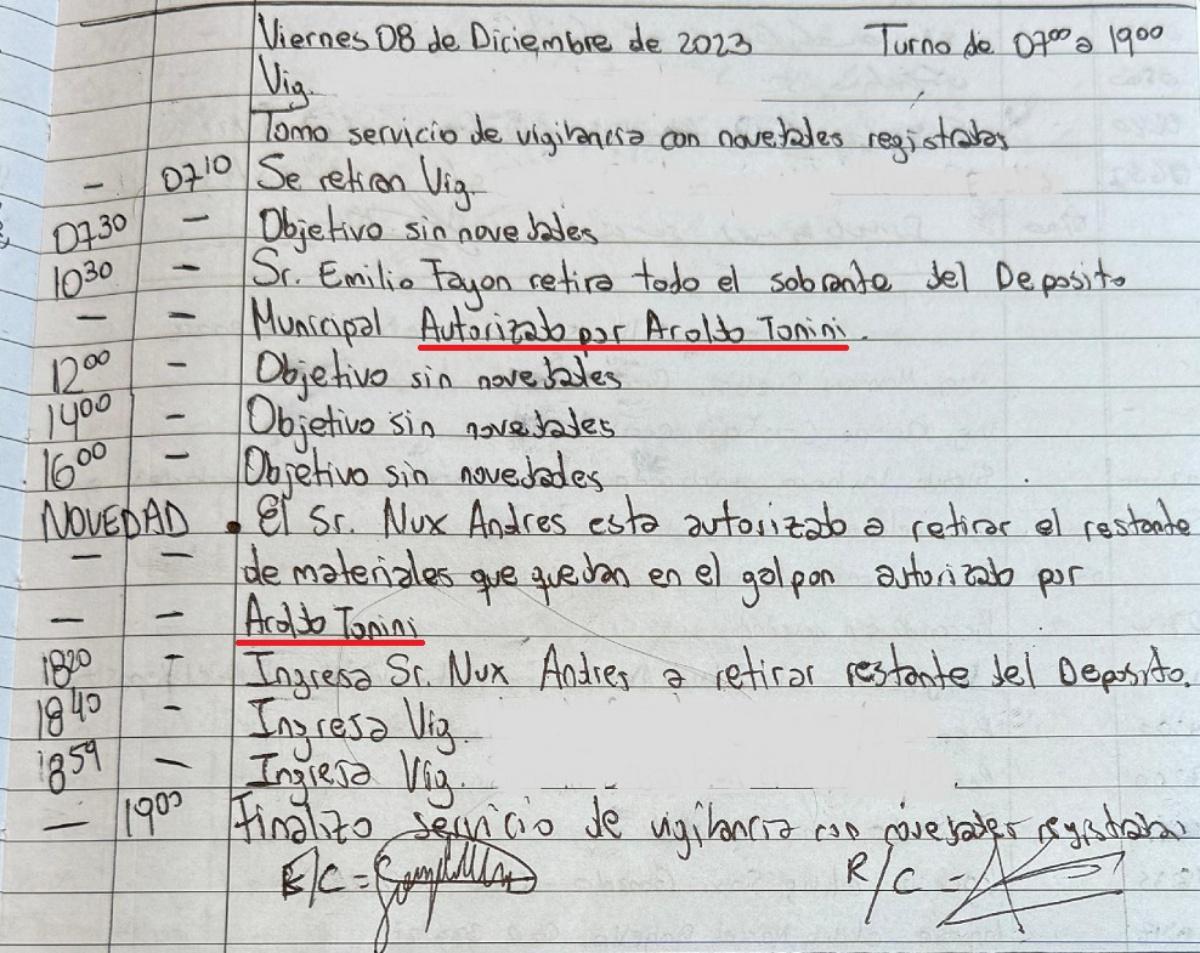 Viernes 08 de Diciembre de 2023 Turno de 07⁰⁰ a 19⁰⁰
Vig.
Tomo servicio de vigilancia con novedades registradas
- 07¹⁰ Se retiran Vig.
07³⁰ - Objetivo sin novedades
10³⁰ - Sr. Emilio Tayon retira todo el sobrante del Deposito
- - Municipal Autorizado por Aroldo Tonini.
12⁰⁰ - Objetivo sin novedades
14⁰⁰ - Objetivo sin novedades
16⁰⁰ - Objetivo sin novedades
NOVEDAD • El Sr. Nux Andres esta autorizado a retirar el restante
- - de materiales que quedan en el galpon autorizado por
- - Aroldo Tonini
18²⁰ - Ingresa Sr. Nux Andres a retirar restante del Deposito.
18⁴⁰ - Ingresa Vig.
18⁵⁹ - Ingresa Vig.
- 19⁰⁰ Finalizo servicio de vigilancia con novedades registradas
E/C = R/C =